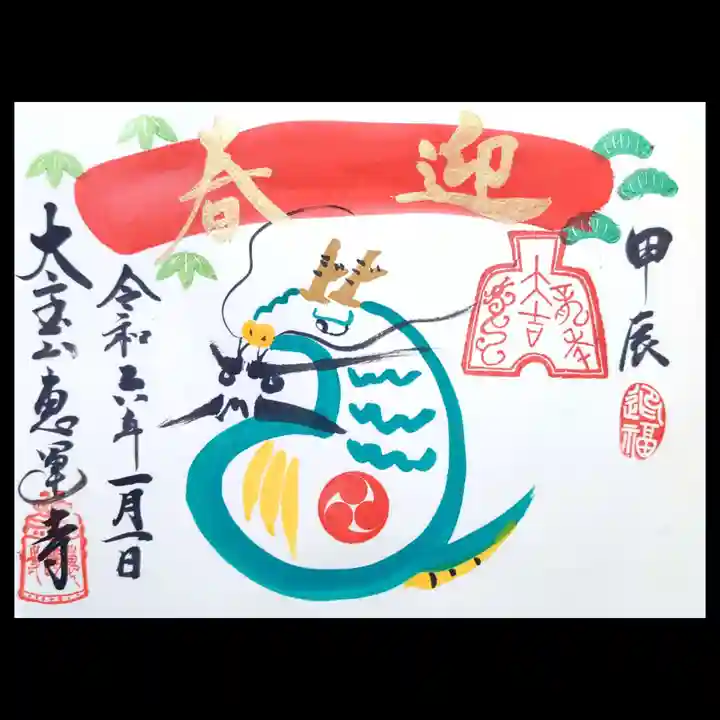 迎春
甲辰
迎福
龍年
大吉
令和六年一月一日
大宝山恵運寺